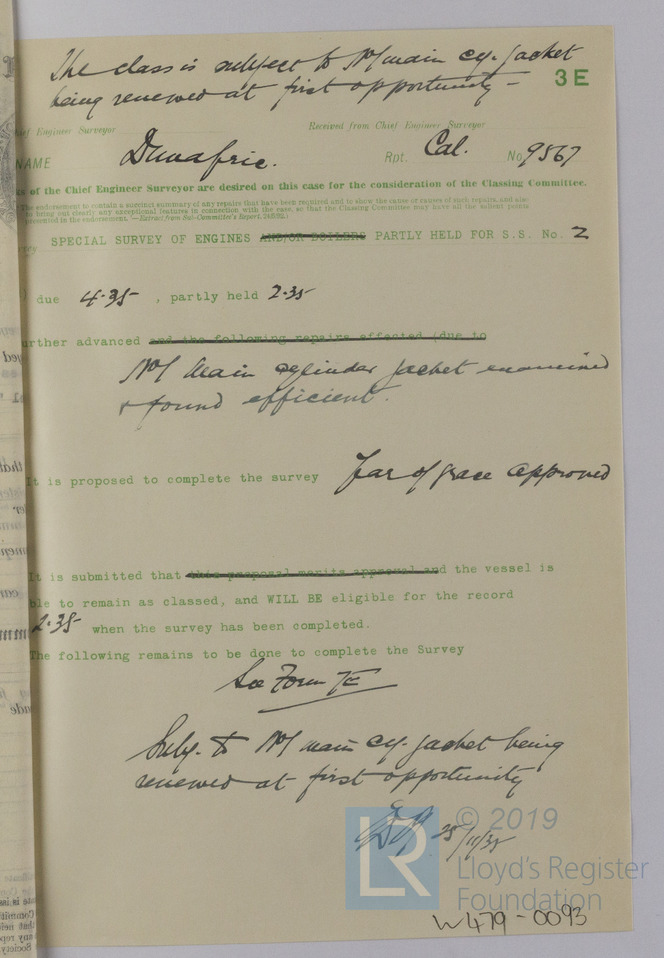 The class is subject to No 1 main cy. jacket
being renewed at first opportunity -
3 E
hief Engineer Surveyor
Received from Chief Engineer Surveyor
NAME Dunafric. Rpt. Cal. No 9567
s of the Chief Engineer Surveyor are desired on this case for the consideration of the Classing Committee.
The endorsement to contain a succinct summary of any repairs that have been required and to show the cause or causes of such repairs, and also
to bring out clearly any exceptional features in connection with the case, so that the Classing Committee may have all the salient points
presented in the endorsement.—Extract from Sub-Committee's Report,
SPECIAL SURVEY OF ENGINES AND/OR BOILERS PARTLY HELD FOR S.S. No. 2
due 4.35 , partly held 2.35
urther advanced and the following repairs effected (due to
No 1 Main cylinder jacket examined
& found efficient.
It is proposed to complete the survey Year of grace approved
It is submitted that this proposal merits approval and the vessel is
ble to remain as classed, and WILL BE eligible for the record
2.35 when the survey has been completed.
The following remains to be done to complete the Survey
See Form 7E
Subj. to No 1 main cy. jacket being
renewed at first opportunity
25/11/35
LR © 2019
Lloyd's Register
Foundation
W479-0093